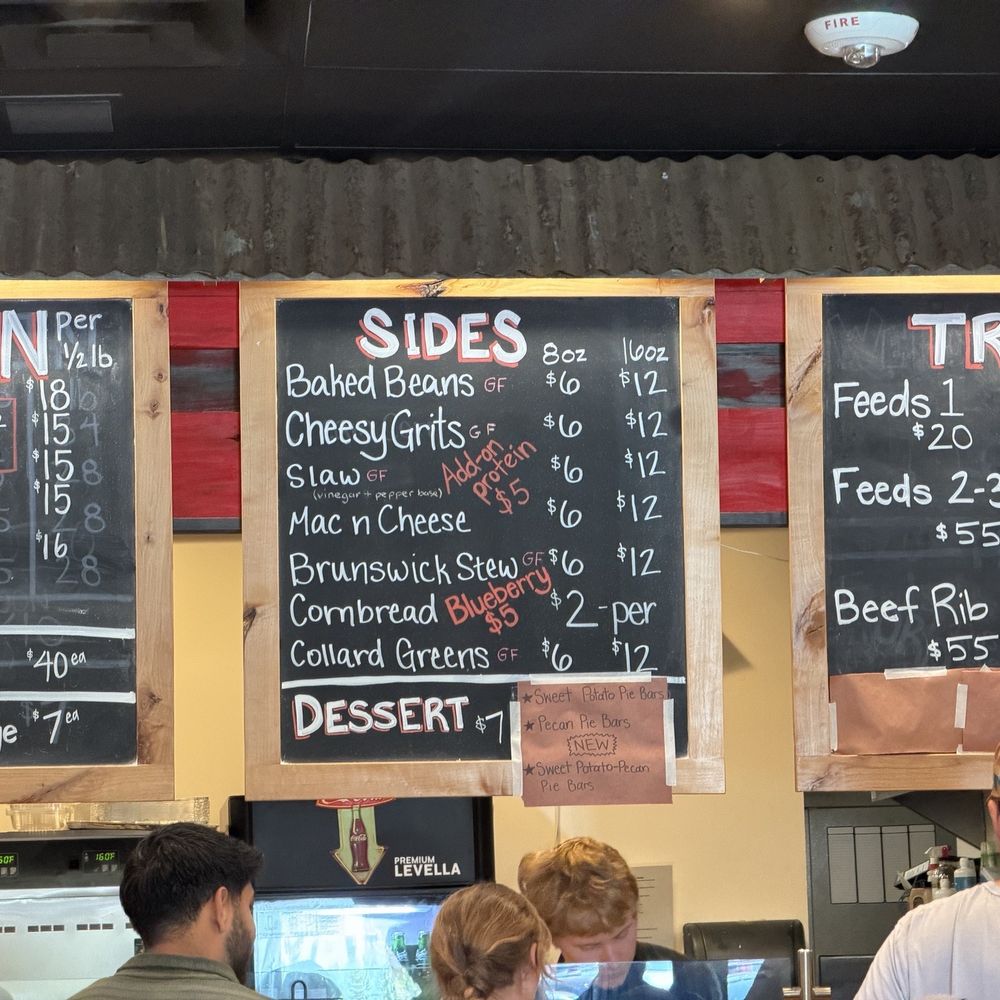 FIRE
N Per
1/2 lb
$18
$15
$15
$15
$16
$40 ea
$7 ea
SIDES 8oz 16oz
Baked Beans GF $6 $12
Cheesy Grits GF $6 $12
Slaw GF $6 $12
(vinegar + pepper base)
Add-on
protein
$5
Mac n Cheese $6 $12
Brunswick Stew GF $6 $12
Cornbread Blueberry $2 - per
$5
Collard Greens GF $6 $12
DESSERT $7
★ Sweet Potato Pie Bars
★ Pecan Pie Bars
NEW
★ Sweet Potato-Pecan
Pie Bars
TR
Feeds 1
$20
Feeds 2-3
$55
Beef Rib
$55
160F
Coca-Cola
PREMIUM
LEVELLA